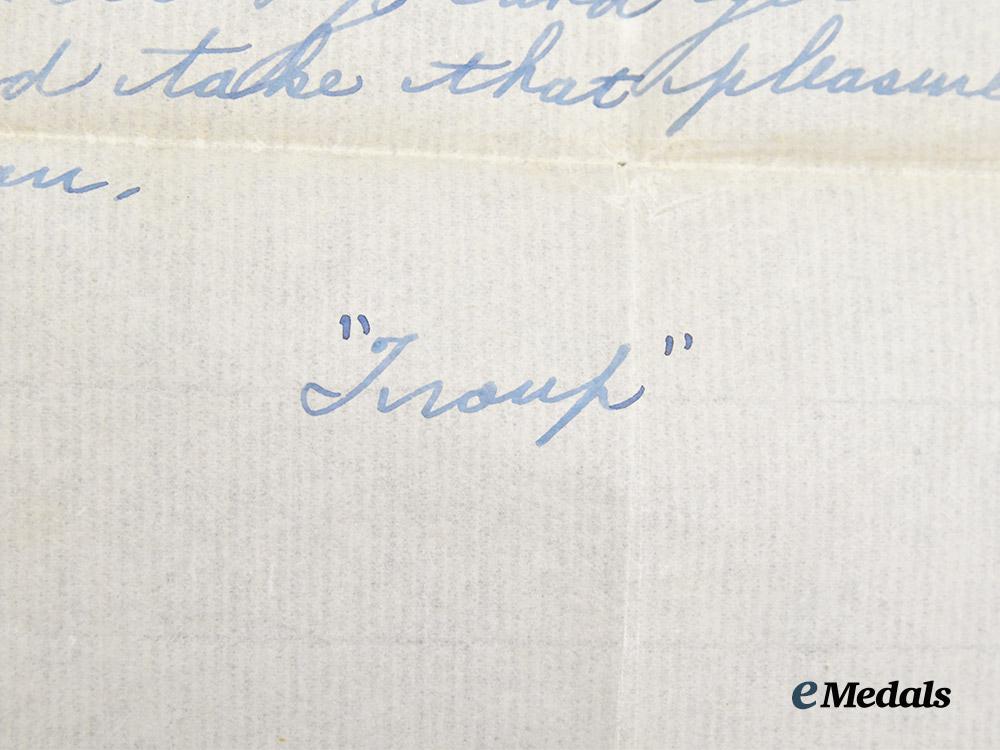 d take that pleasure
"Troup"
eMedals